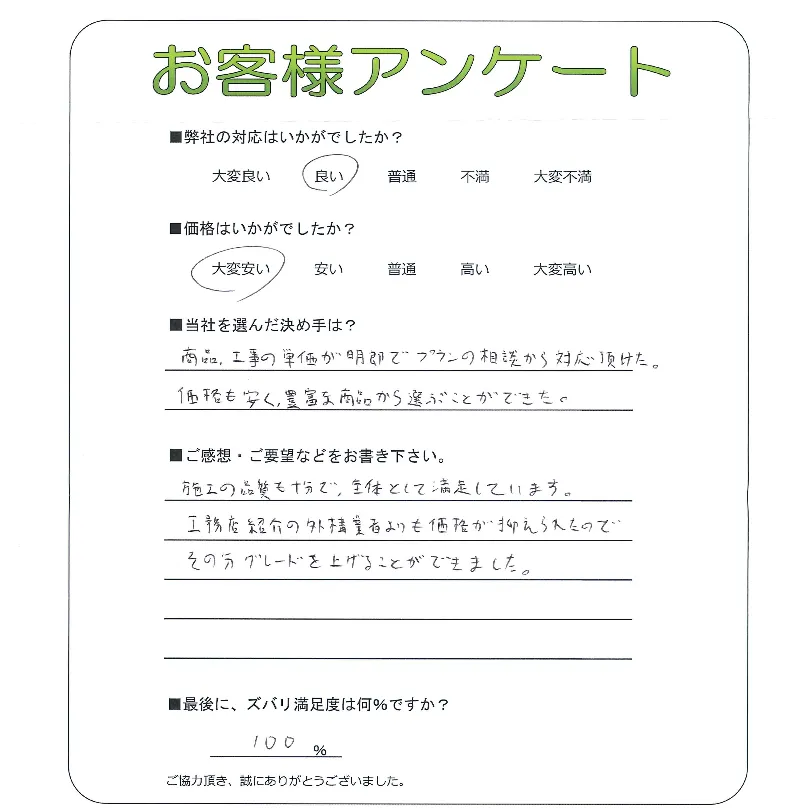 お客様アンケート
■弊社の対応はいかがでしたか？
大変良い 良い 普通 不満 大変不満
■価格はいかがでしたか？
大変安い 安い 普通 高い 大変高い
■当社を選んだ決め手は？
商品、工事の単価が明朗でプランの相談から対応頂けた。
価格も安く、豊富な商品から選ぶことができた。
■ご感想・ご要望などをお書き下さい。
施工の品質も十分で、全体として満足しています。
工務店紹介の外構業者よりも価格が抑えられたので
その分グレードを上げることができました。
■最後に、ズバリ満足度は何%ですか？
100 %
ご協力頂き、誠にありがとうございました。